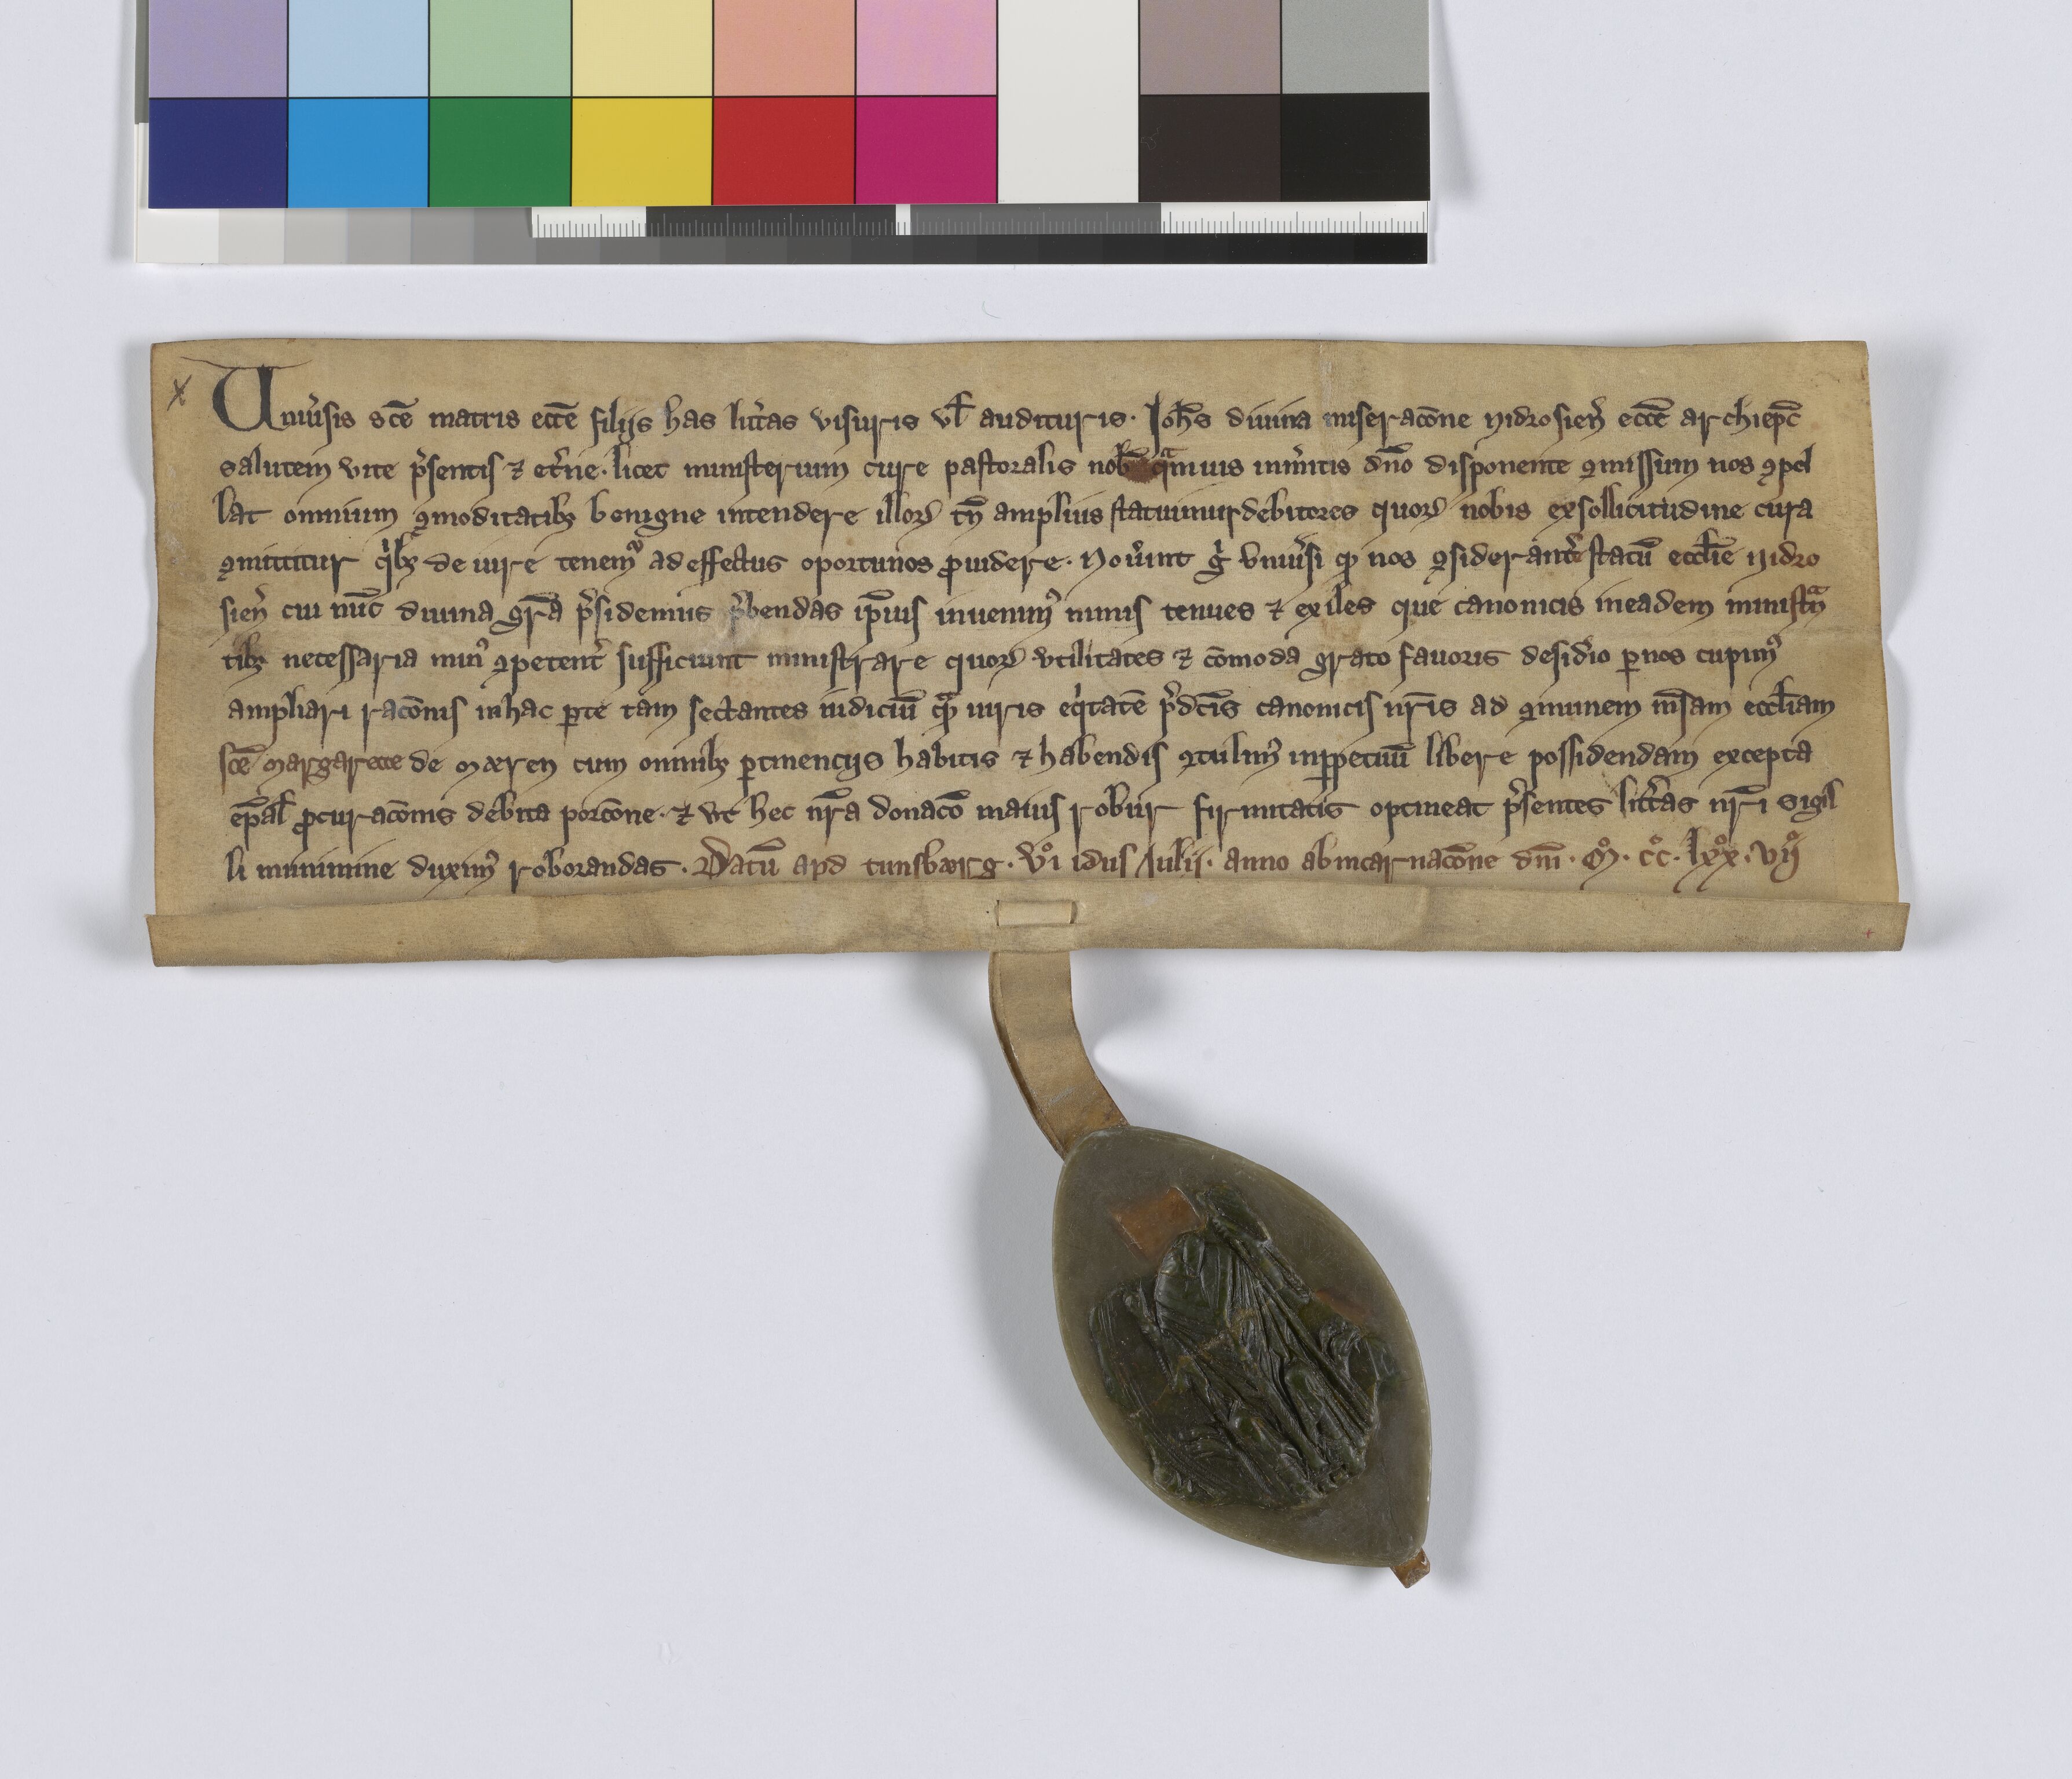 x
Vniu̾sis sc̄e matris ecc̄e filijs has litt̾as visuris vl̄ audituris. Joh̄s diuina miserac̄one nidrosien̾ ecc̄e archiep̄c
salutem vite p̾sentis ⁊ et̾ne. licet ministerium cure pastoralis nob̄ qᵃmuis inm̾itis dn̄o disponente ꝯmissum nos ꝯpel
lat omnium ꝯmoditatibꝫ benigne intendere illoꝝ tn̄ amplius statuimur debitores quoꝝ nobis ex sollicitudine cura
ꝯmittitur qⁱbꝫ de iure tenemᷣ ad effectus oportunos ꝓuidere. Nou̾int gͥ vniu̾si ꝙ nos ꝯsiderant̾ statū eccl̄ie nidro
sien̾ cui nūc diuina gr̄a p̾sidemus p̾bendas ip̄ius inuenimꝰ nimis tenues ⁊ exiles que canonicis in eadem ministrᵃn
tibꝫ necessaria minꝰ ꝯpetent̾ sufficiunt ministrare quoꝝ vtilitates ⁊ cōmoda grato fauoris desid̾io ꝑ nos cupimꝰ
ampliari rac̄onis in hac ꝑte tam sectantes iudiciū qᵃ̄ iuris eqⁱtatē p̾dc̄is canonicis nr̄is ad ꝯmunem m̄sam eccl̄iam
sc̄e margarete de mæren cum omnibꝫ ꝑtinencijs habitis ⁊ habendis ꝯtulimꝰ inꝑpetuū libere possidendam excepta
ep̄al̄ ꝓcurac̄onis debita porc̄one. ⁊ vt hec nr̄a donac̄o maius robur firmitatis optineat p̾sentes litt̾as nr̄i sigil
li munimine duximꝰ roborandas. Datū apd tunsbærg. vͦi idus Julij. anno ab incarnac̄one dn̄i. Mͦ. cͦc. lxͦx. vijͦ